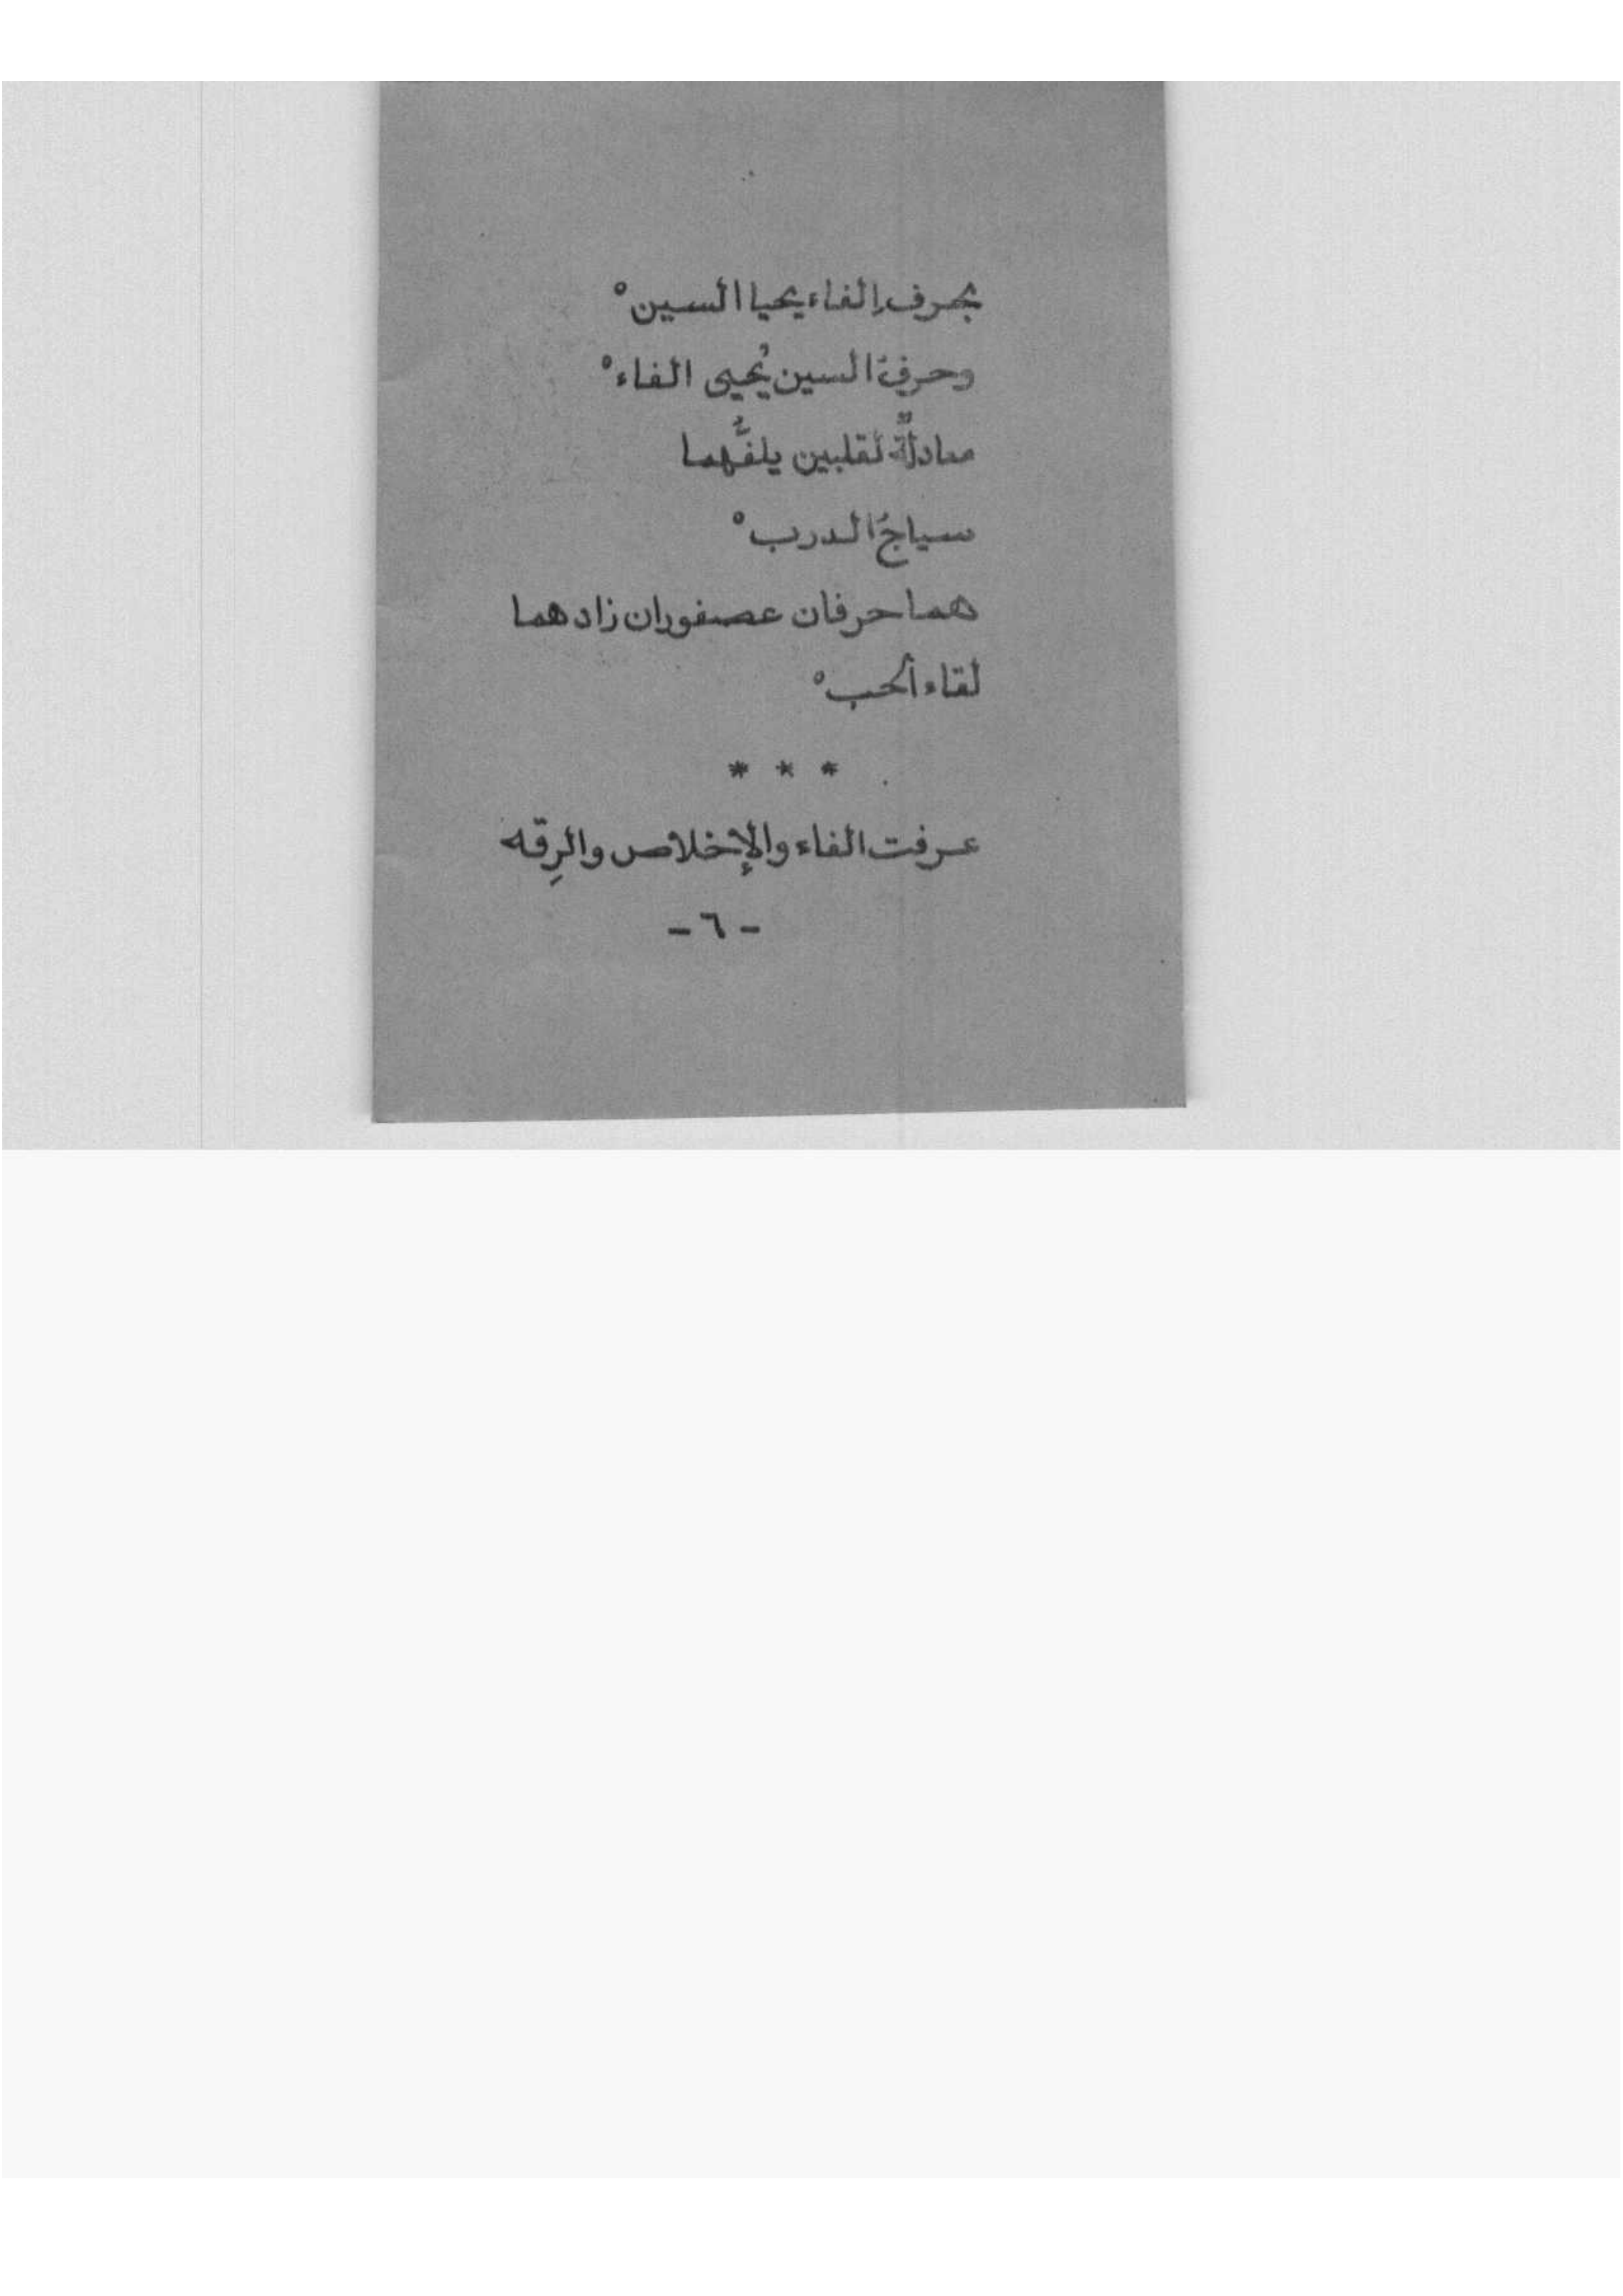 بحرفِ الفاء يحيا السينْ
وحرفُ السين يُحيي الفاءْ
معادلةٌ لقلبين يلفُّهما
سياجُ الدربْ
هما حرفان عصفوران زادهما
لقاء الحبْ
* * *
عرفت الفاء والإخلاص والرِقه
- ٦ -